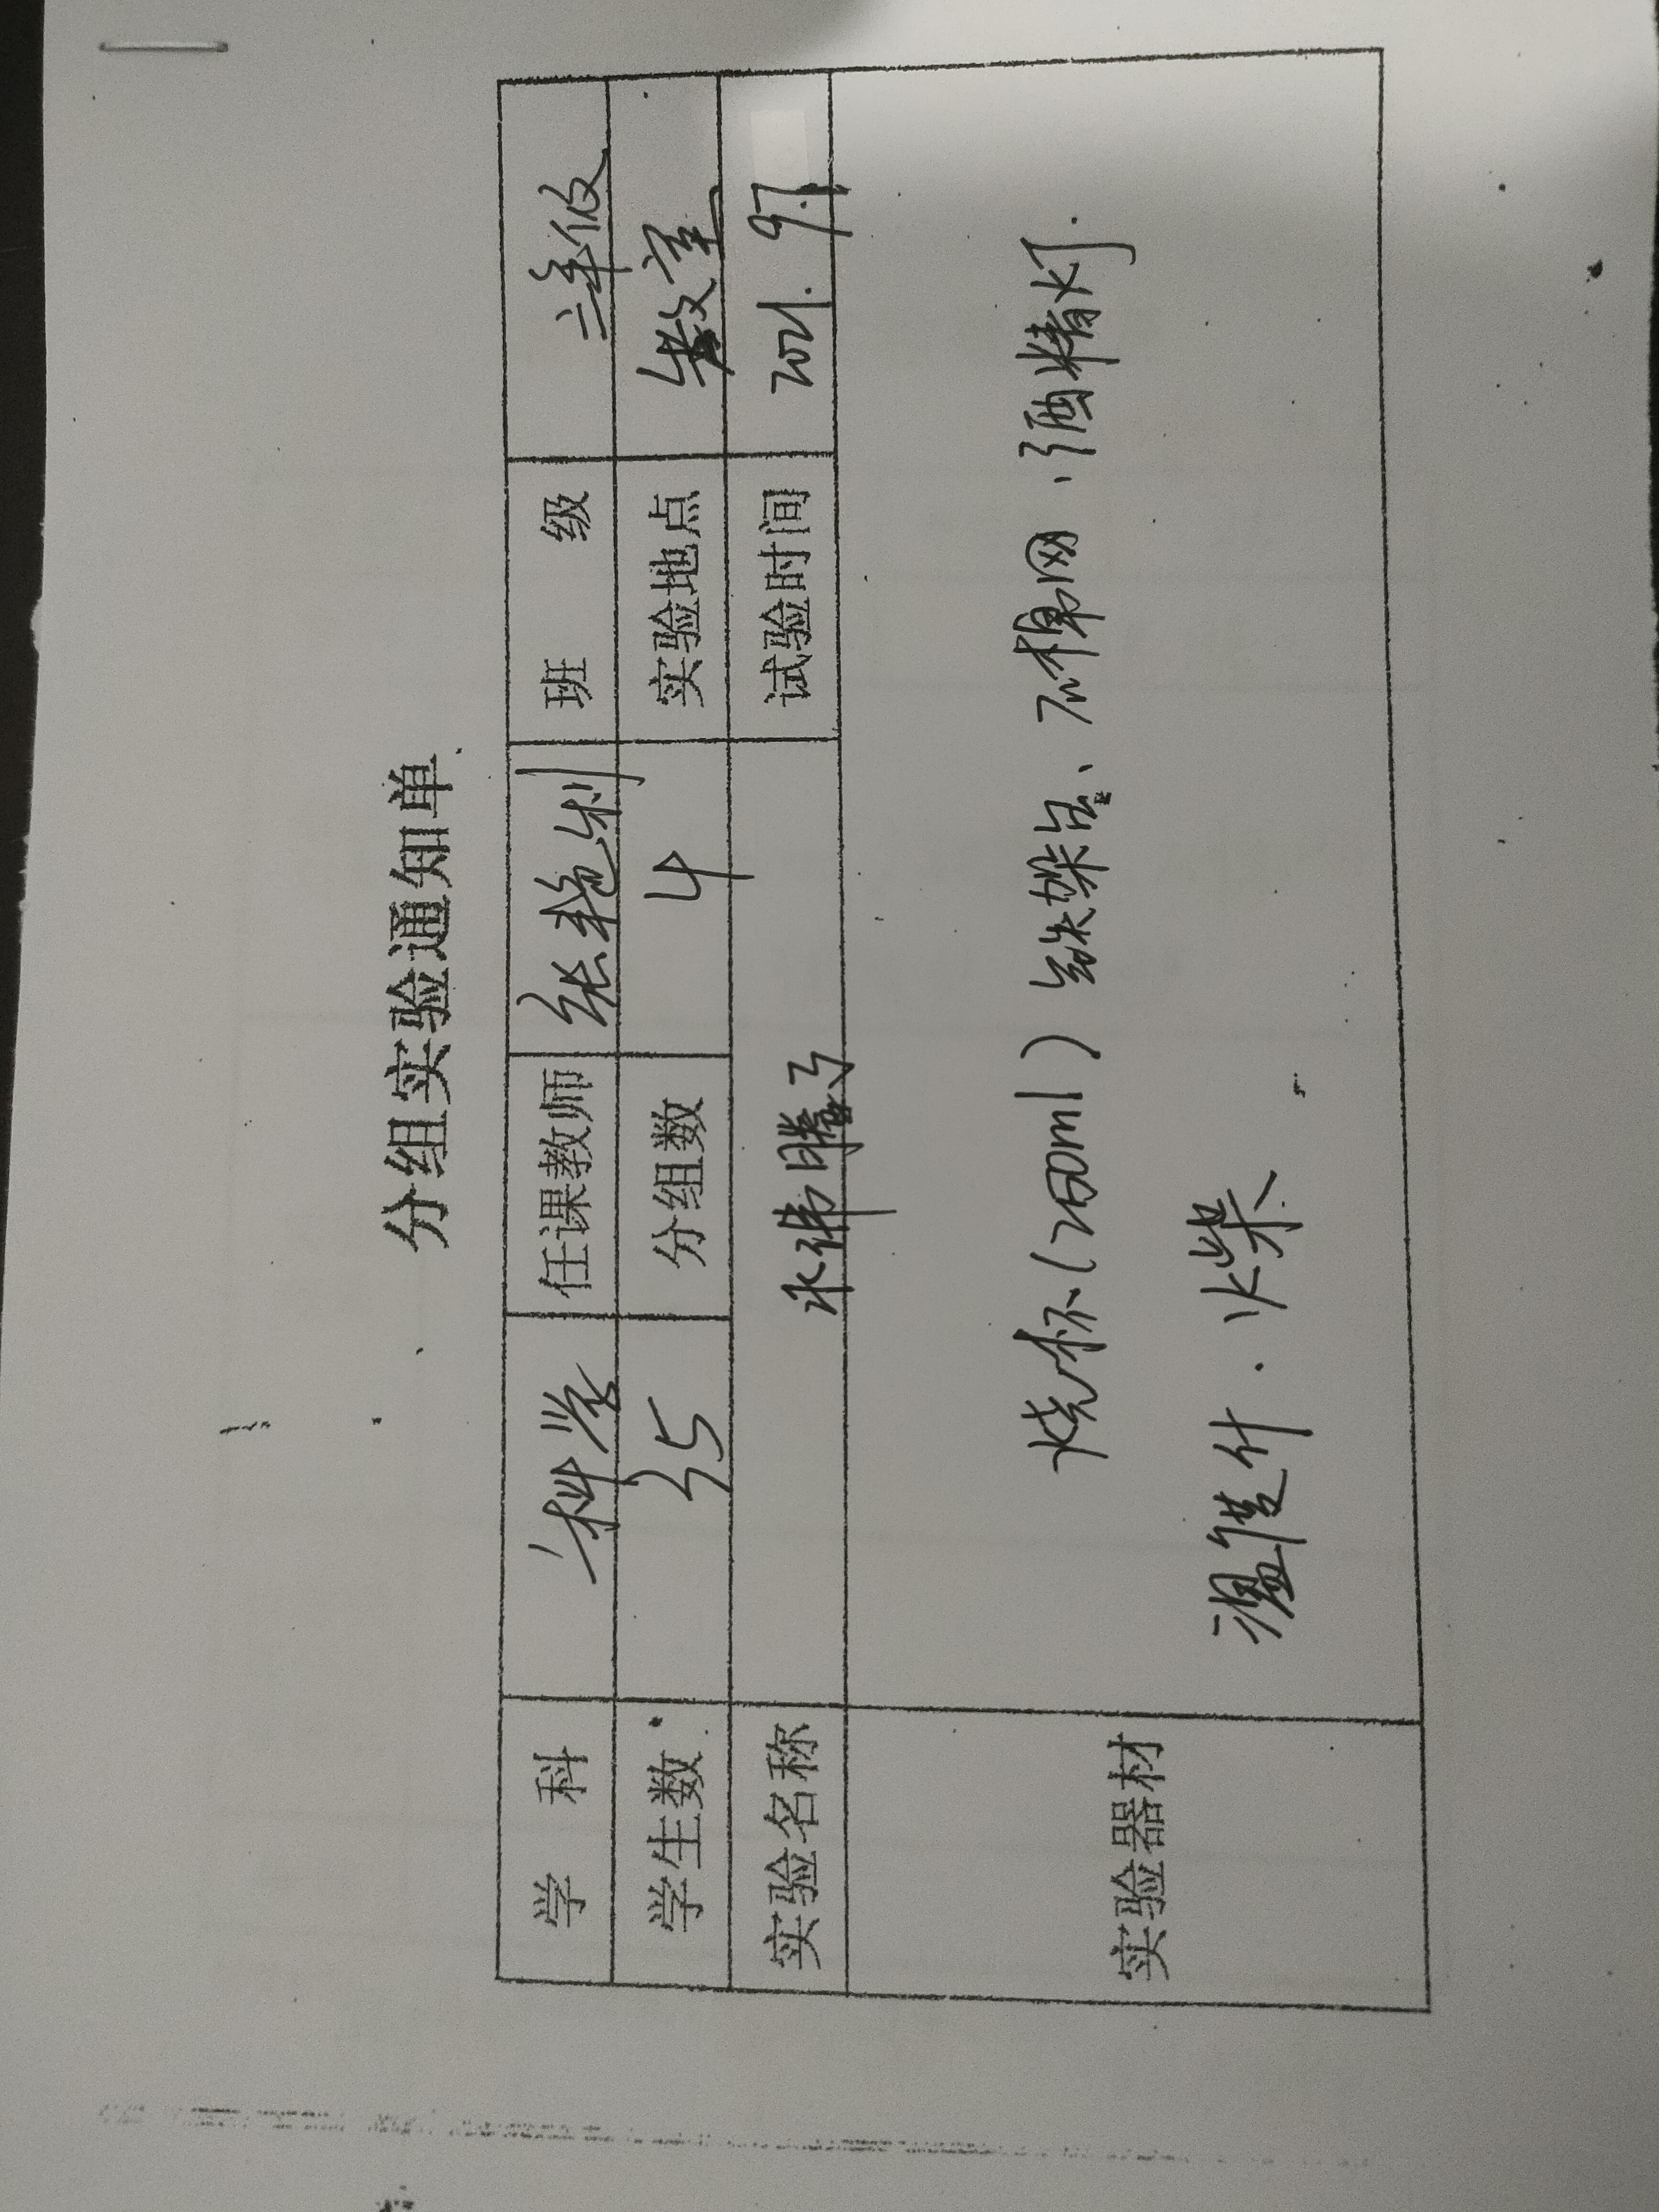 分组实验通知单
学 科 科学 任课教师 张艳利 班 级 三年级
学生数 35 分组数 4 实验地点 教室
实验名称 水沸腾了 试验时间 2021. 9.
实验器材 烧杯(250ml)铁架台、石棉网、酒精灯.
温度计.火柴